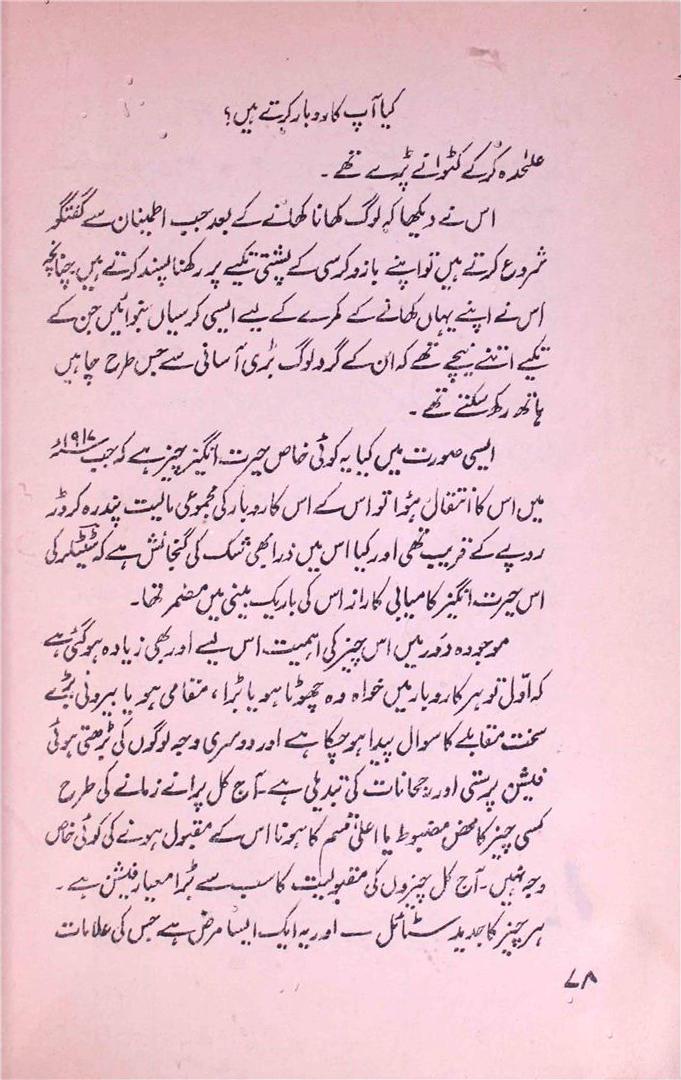 کیا آپ کاروبار کرتے ہیں؟
علیٰحدہ کر کے کٹوانے پڑے تھے۔
اس نے دیکھا کہ لوگ کھانا کھانے کے بعد جب اطمینان سے گفتگو
شروع کرتے ہیں تو اپنے بازو کرسی کے پشتی تکیے پر رکھنا پسند کرتے ہیں چنانچہ
اس نے اپنے یہاں کھانے کے کمرے کے لیے ایسی کرسیاں بنوائیں جن کے
تکیے اتنے نیچے تھے کہ ان کے گرد لوگ بڑی آسانی سے جس طرح چاہیں
ہاتھ رکھ سکتے تھے۔
ایسی صورت میں کیا یہ کوئی خاص حیرت انگیز چیز ہے کہ جب
میں اس کا انتقال ہؤا تو اس کے اس کاروبار کی مجموعی مالیت پندرہ کروڑ
روپے کے قریب تھی اور کیا اس میں ذرا بھی شک کی گنجائش ہے کہ سٹیٹلر کی
اس حیرت انگیز کامیابی کا راز اس کی باریک بینی میں مضمر تھا۔
موجودہ دَور میں اس چیز کی اہمیت اس لیے اور بھی زیادہ ہو گئی ہے
کہ اوّل تو ہر کاروبار میں خواہ وہ چھوٹا ہو یا بڑا، مقامی ہو یا بیرونی بڑے
سخت مقابلے کا سوال پیدا ہو چکا ہے اور دوسری وجہ لوگوں کی بڑھتی ہوئی
فیشن پرستی اور رجحانات کی تبدیلی ہے۔ آج کل پرانے زمانے کی طرح
کسی چیز کا محض مضبوط یا اعلیٰ قسم کا ہونا اس کے مقبول ہونے کی کوئی خاص
وجہ نہیں۔ آج کل چیزوں کی مقبولیت کا سب سے بڑا معیار فیشن ہے۔
ہر چیز کا جدید سٹائل — اور یہ ایک ایسا مرض ہے جس کی علامات
۷۸